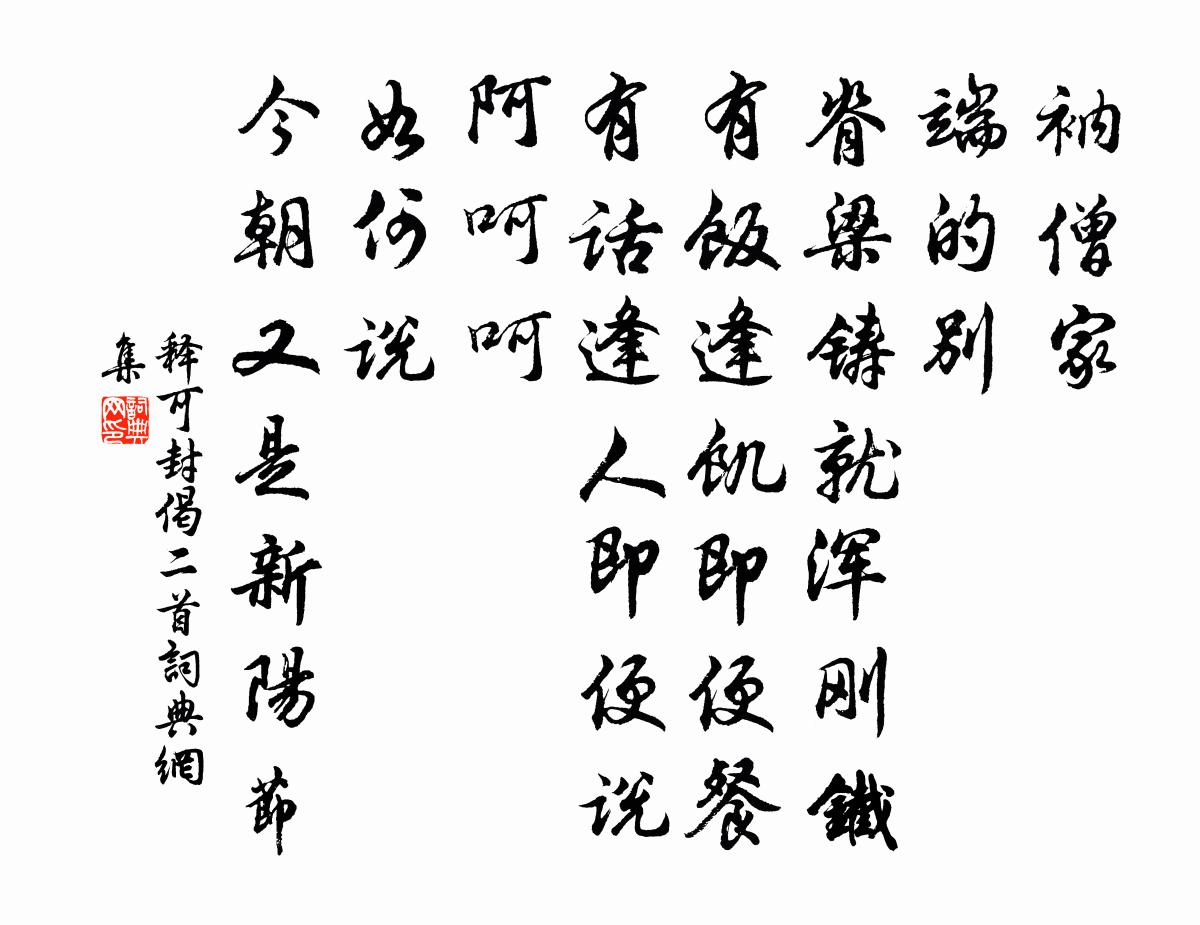 衲僧家
端的别
脊梁铸就浑刚鐵
有飯逢飢即便餐
有话逢人即便说
阿呵呵
如何说
今朝又是新陽節
释可封偈二首詞典網
集
詞典网印